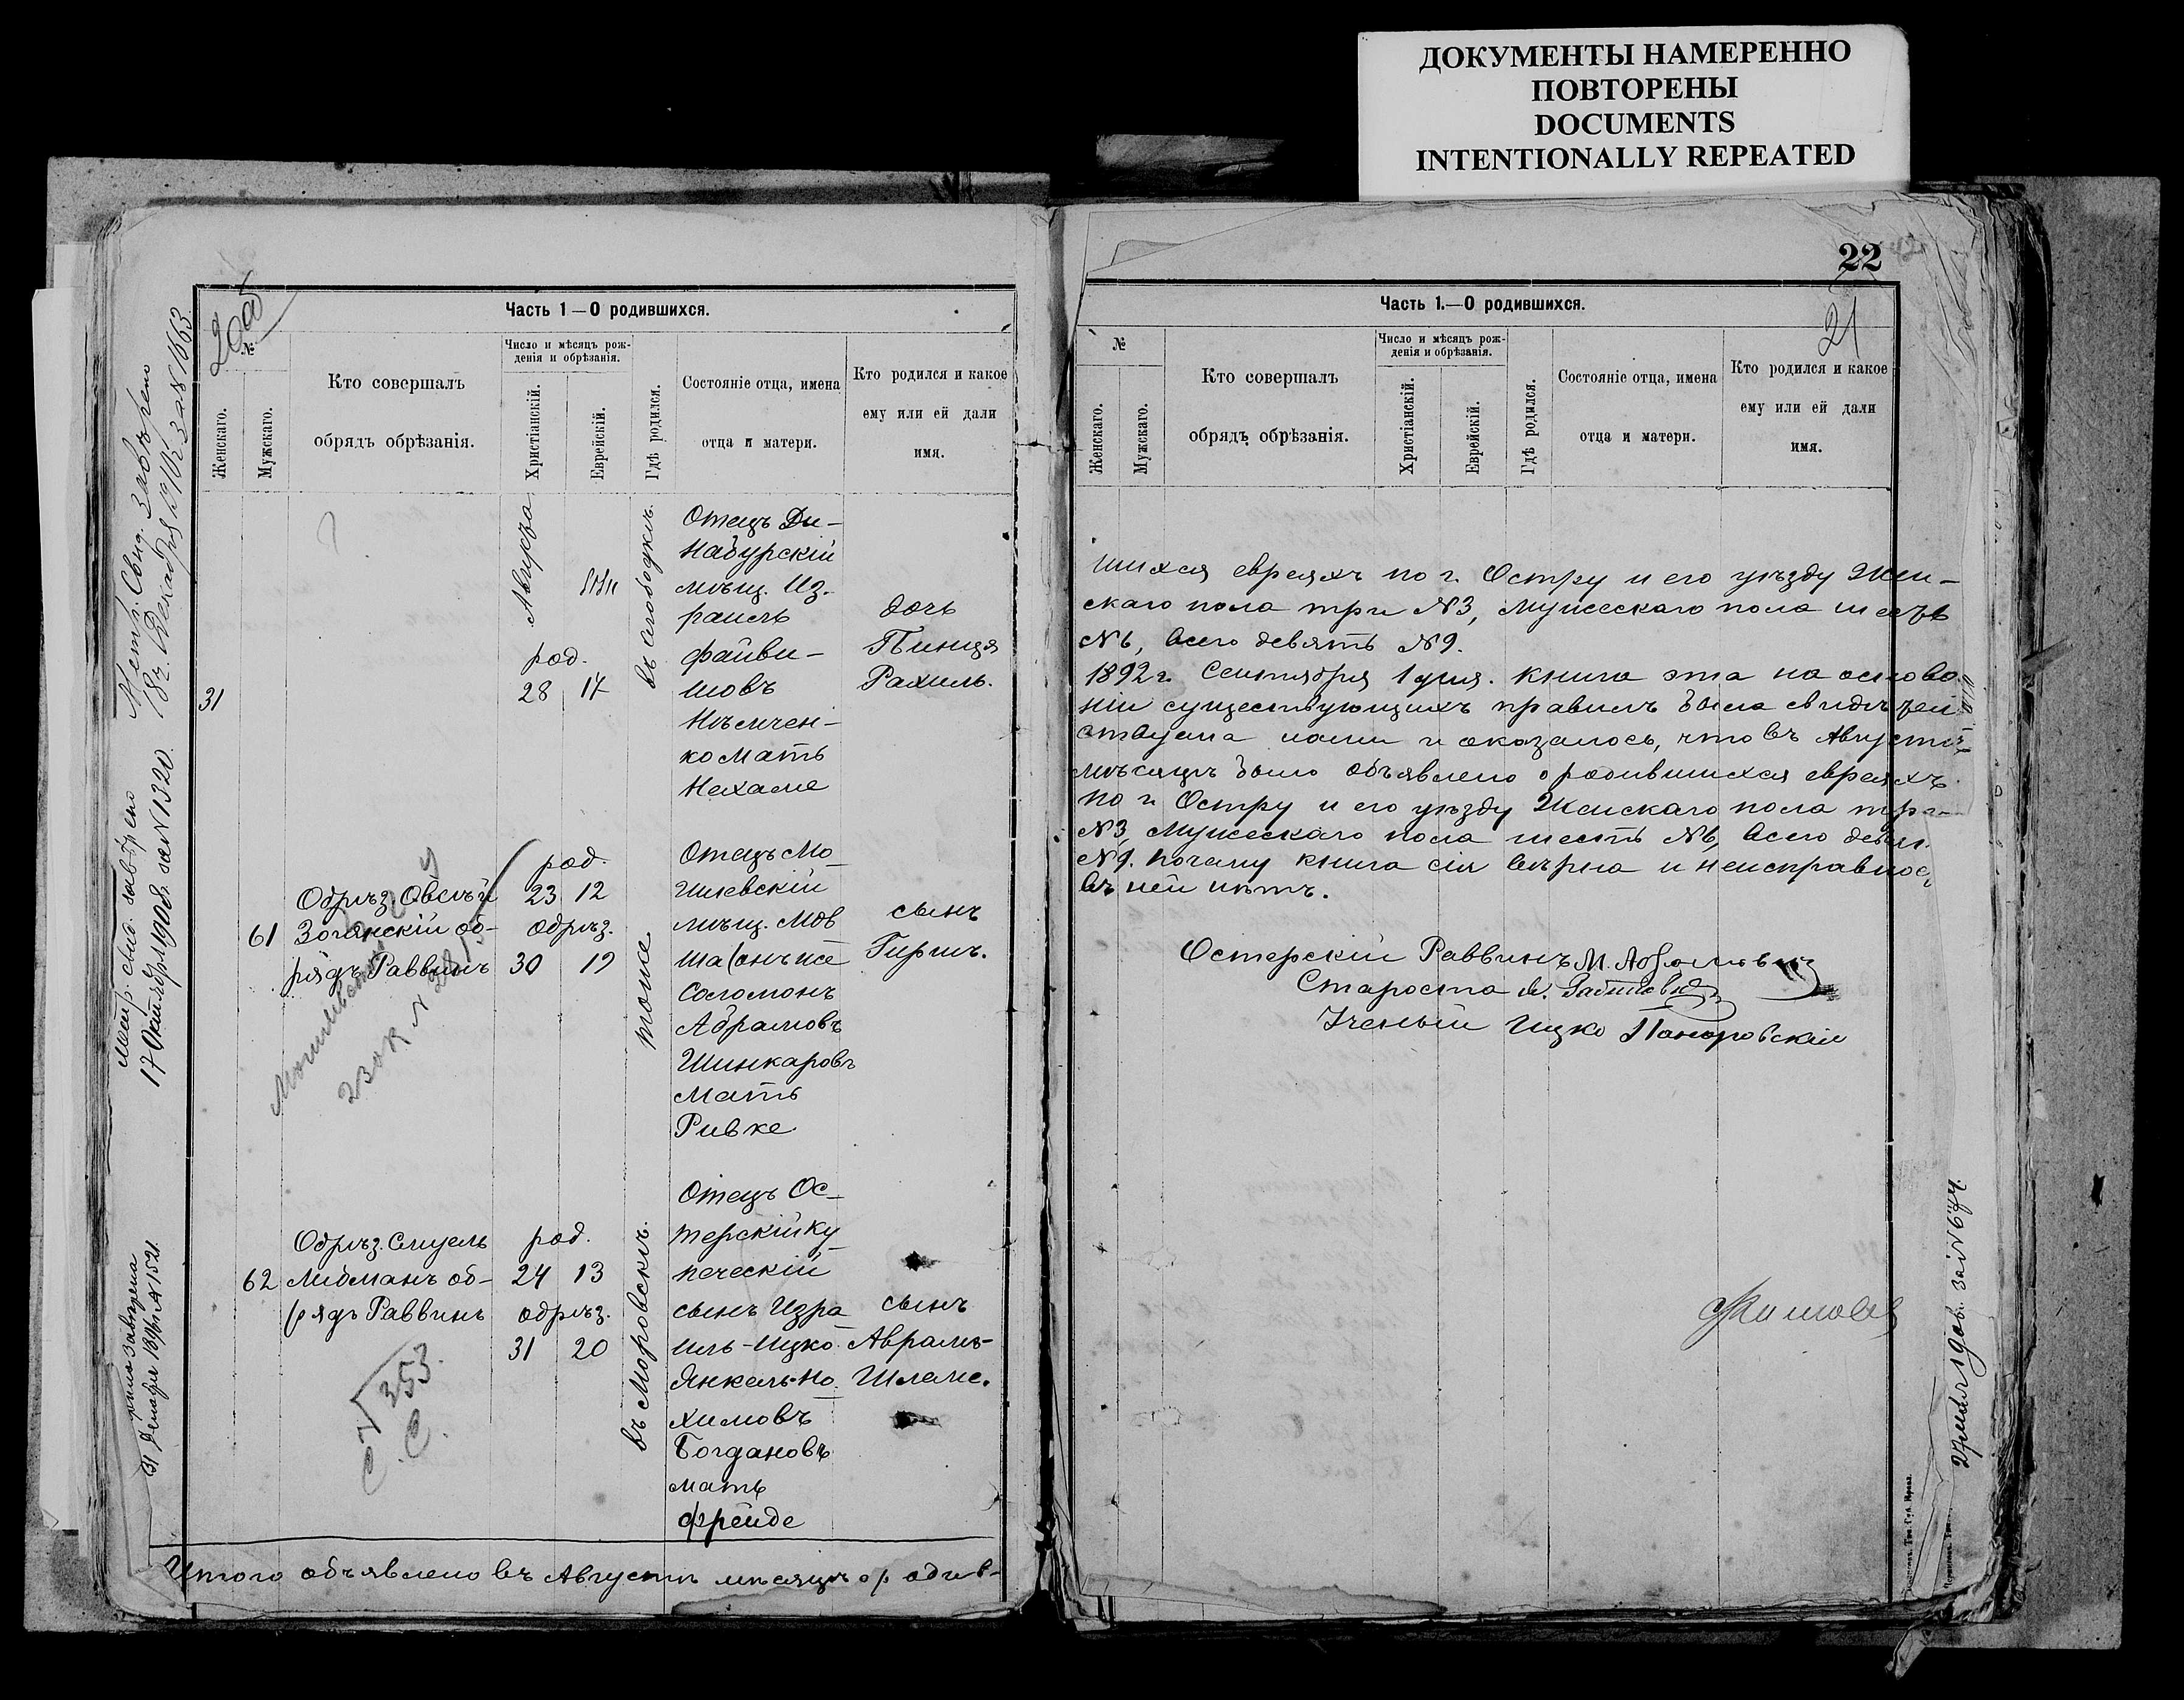 ДОКУМЕНТЫ НАМЕРЕННО
ПОВТОРЕНЫ
DOCUMENTS
INTENTIONALLY REPEATED
Часть 1 — О родившихся.
№
Женскаго.
Мужскаго.
Кто совершалъ
обрядъ обрѣзанія.
Число и мѣсяцъ рож-
денія и обрѣзанія.
Христіанскій.
Еврейскій.
Гдѣ родился.
Состояніе отца, имена
отца и матери.
Кто родился и какое
ему или ей дали
имя.
31
Августа
род.
28 17
въ слободкѣ.
Отецъ Ди-
набурскій
мѣщ. Из-
раиль
Файви-
шовъ
Нѣмчен-
ко Мать
Нехаме
дочь
Пинця
Рахиль.
61
Обрѣз. Овсѣй
Зоганскій об-
рядъ Раввинъ
род.
23 12
обрѣз.
30 19
тоже
Отецъ Мо-
гилевскій
мѣщ. Мов
ша онъ же
Соломонъ
Абрамовъ
Шинкаровъ
Мать
Ривке
сынъ
Гиршъ.
62
Обрѣз. Смуель
Либманъ об-
рядъ Раввинъ
род.
24 13
обрѣз.
31 20
въ Моровскѣ.
Отецъ Ос-
терскій ку-
печескій
сынъ Изра
иль-Ицко-
Янкель-Но-
химовъ
Богдановъ
мать
Фрейде
сынъ
Аврамъ-
Шлеме.
353
С. С.
Итого объявлено въ Августѣ мѣсяцѣ о родив-
Метр. Свид. завѣрено
18 г. Декабря 1910 г. за N 1663.
метр. свид. завѣрено
17 Октября 1908 г. за N 1320.
31 Декабря N 1521.
22
21
Часть 1.—О родившихся.
№
Женскаго.
Мужскаго.
Кто совершалъ
обрядъ обрѣзанія.
Число и мѣсяцъ рож-
денія и обрѣзанія.
Христіанскій.
Еврейскій.
Гдѣ родился.
Состояніе отца, имена
отца и матери.
Кто родился и какое
ему или ей дали
имя.
шихся евреяхъ по г. Остру и его уѣзду Жен-
скаго пола три N3, Мужескаго пола шесть
N6, всего девять N9.
1892 г. Сентября 1 дня. Книга эта на основа
ніи существующихъ правилъ была свидѣтель
ствуема нами и оказалось, что въ Августѣ
мѣсяцѣ было объявлено о родившихся евреяхъ
по г. Остру и его уѣзду Женскаго пола три
N3, Мужескаго пола шесть N6, всего девят.
N9. почему книга сія вѣрна и неисправнос
въ ней нѣтъ.
Остерскій Раввинъ М.
Староста
Ученый Ицко
27 мая 1906 г. за N 674.